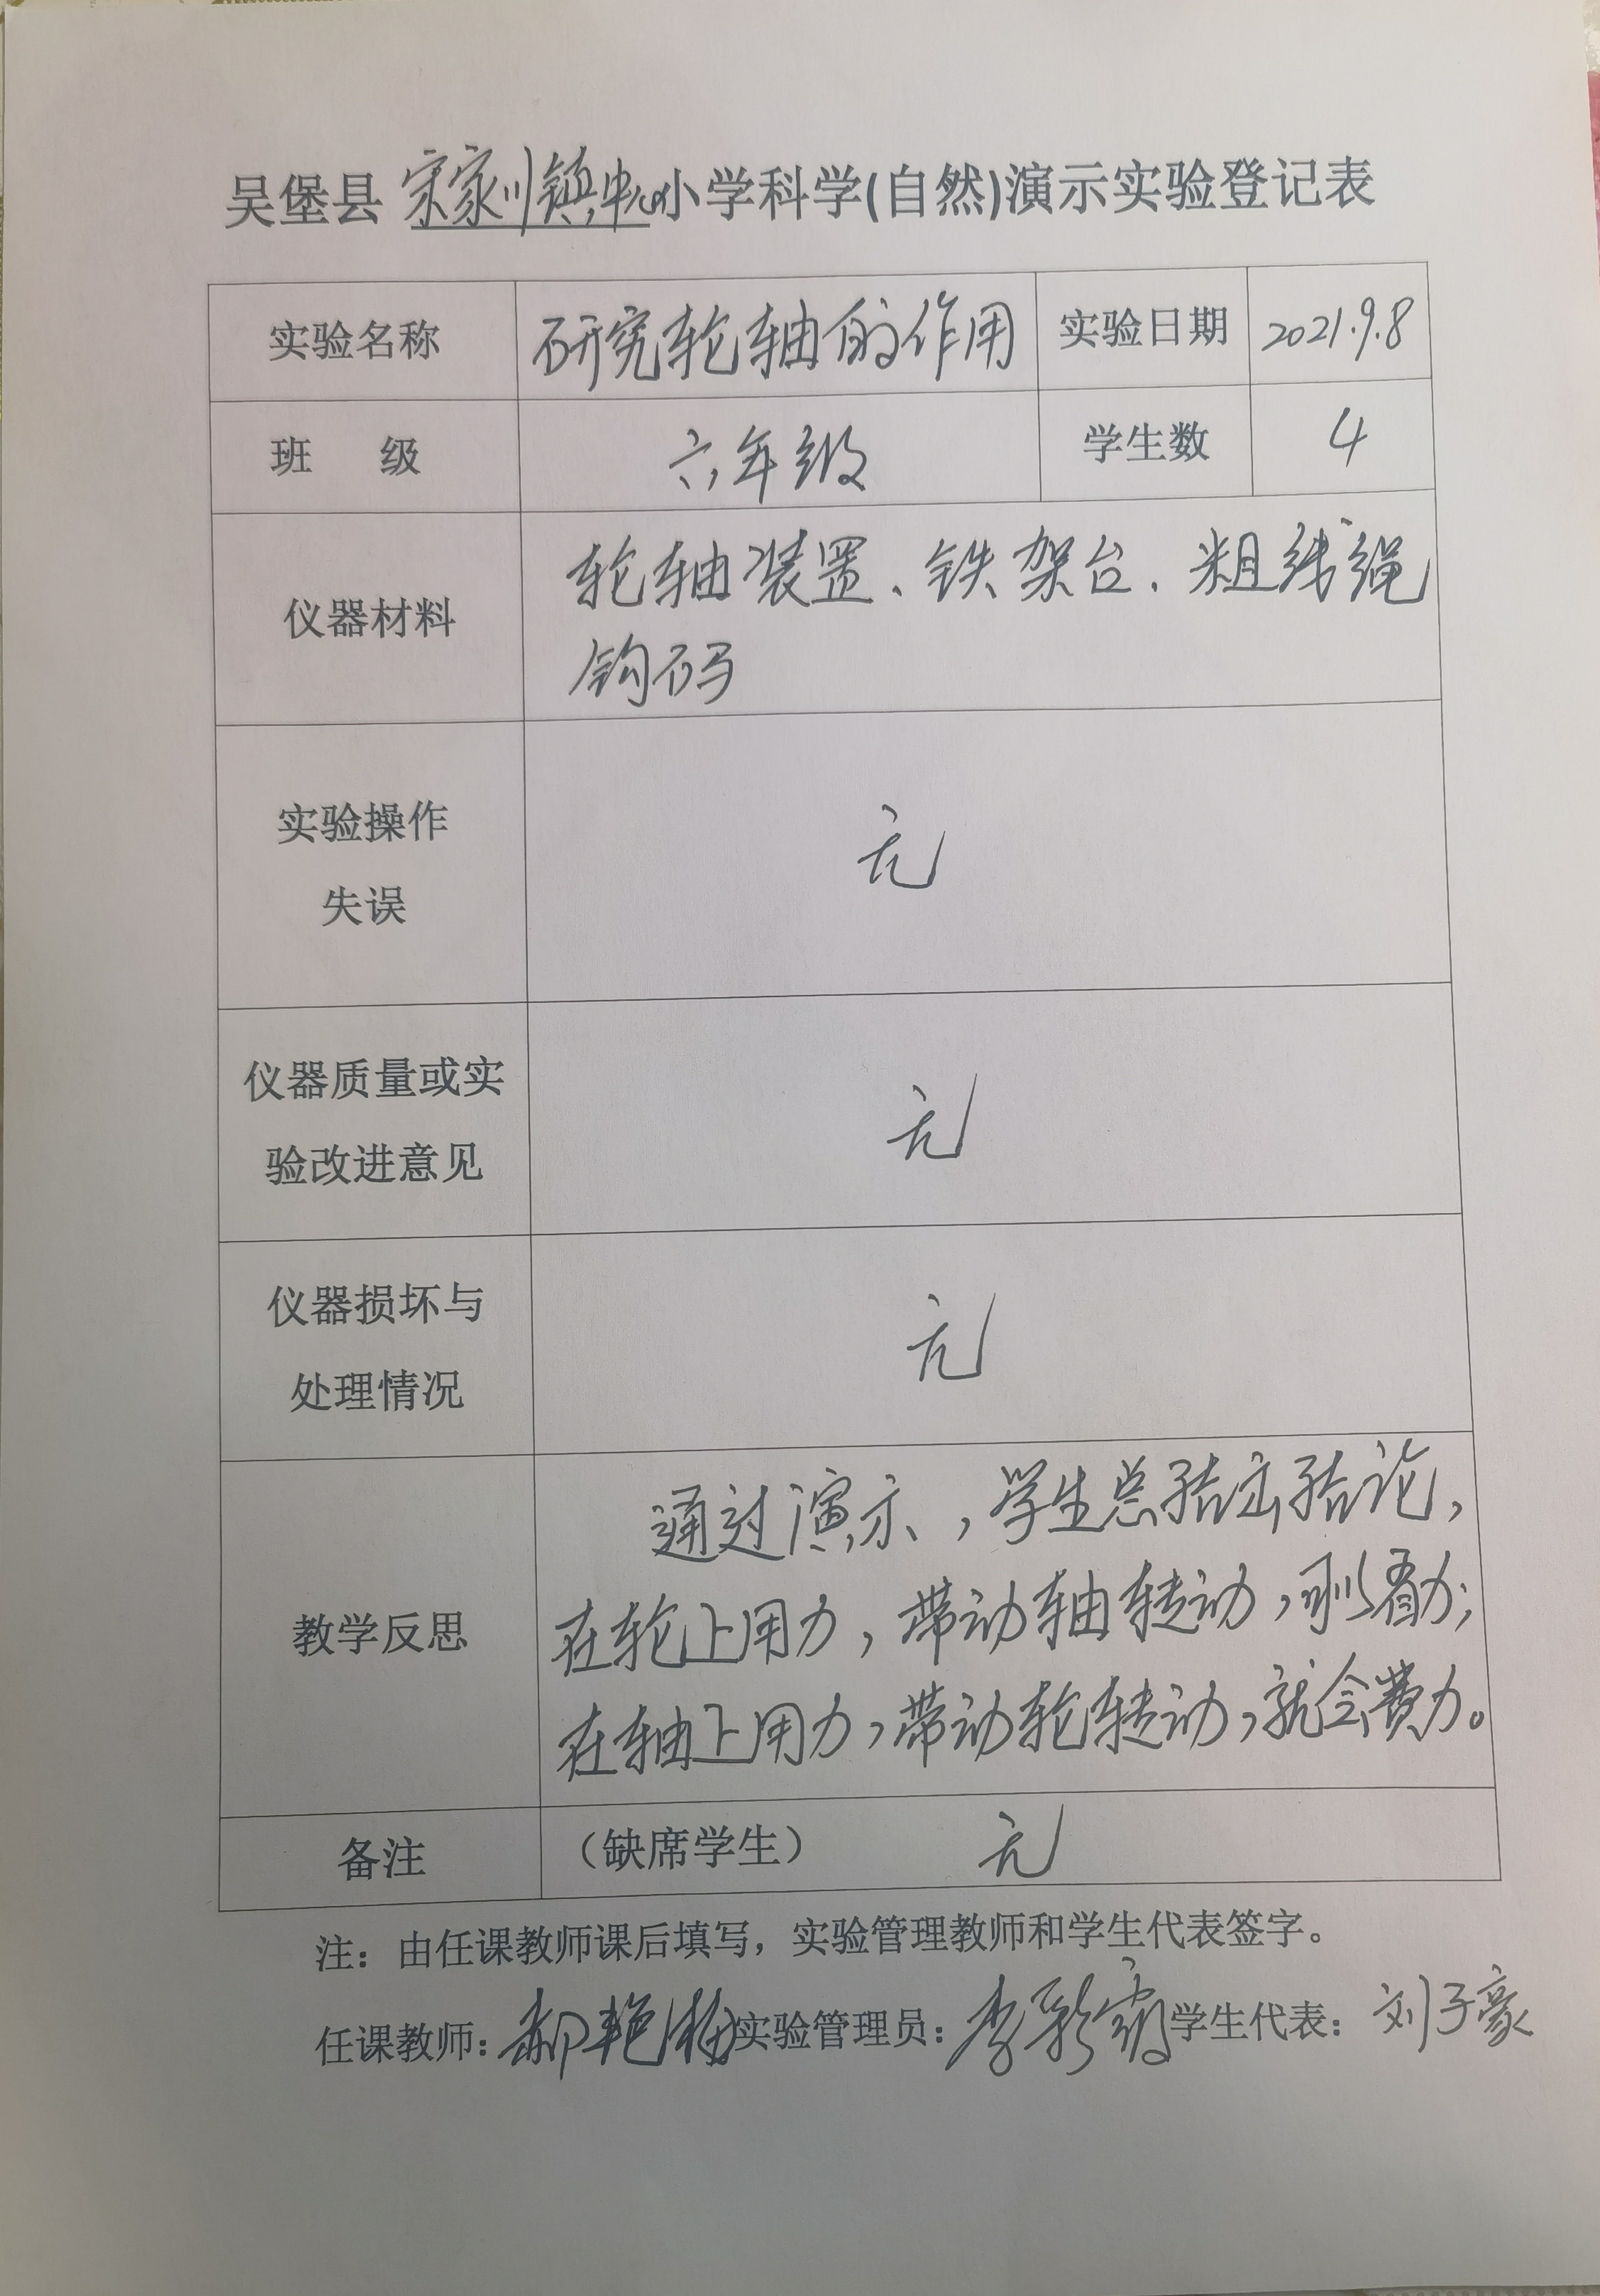 吴堡县 宋家川镇中心小学科学(自然)演示实验登记表
实验名称 研究轮轴的作用 实验日期 2021.9.8
班 级 六年级 学生数 4
仪器材料 轮轴装置、铁架台、粗线绳
钩码
实验操作
失误
无
仪器质量或实
验改进意见
无
仪器损坏与
处理情况
无
教学反思
通过演示,学生总结出结论,
在轮上用力,带动轴转动,则省力;
在轴上用力,带动轮转动,就会费力。
备注 (缺席学生) 无
注:由任课教师课后填写,实验管理教师和学生代表签字。
任课教师:郝艳梅 实验管理员:李彩霞 学生代表:刘子豪